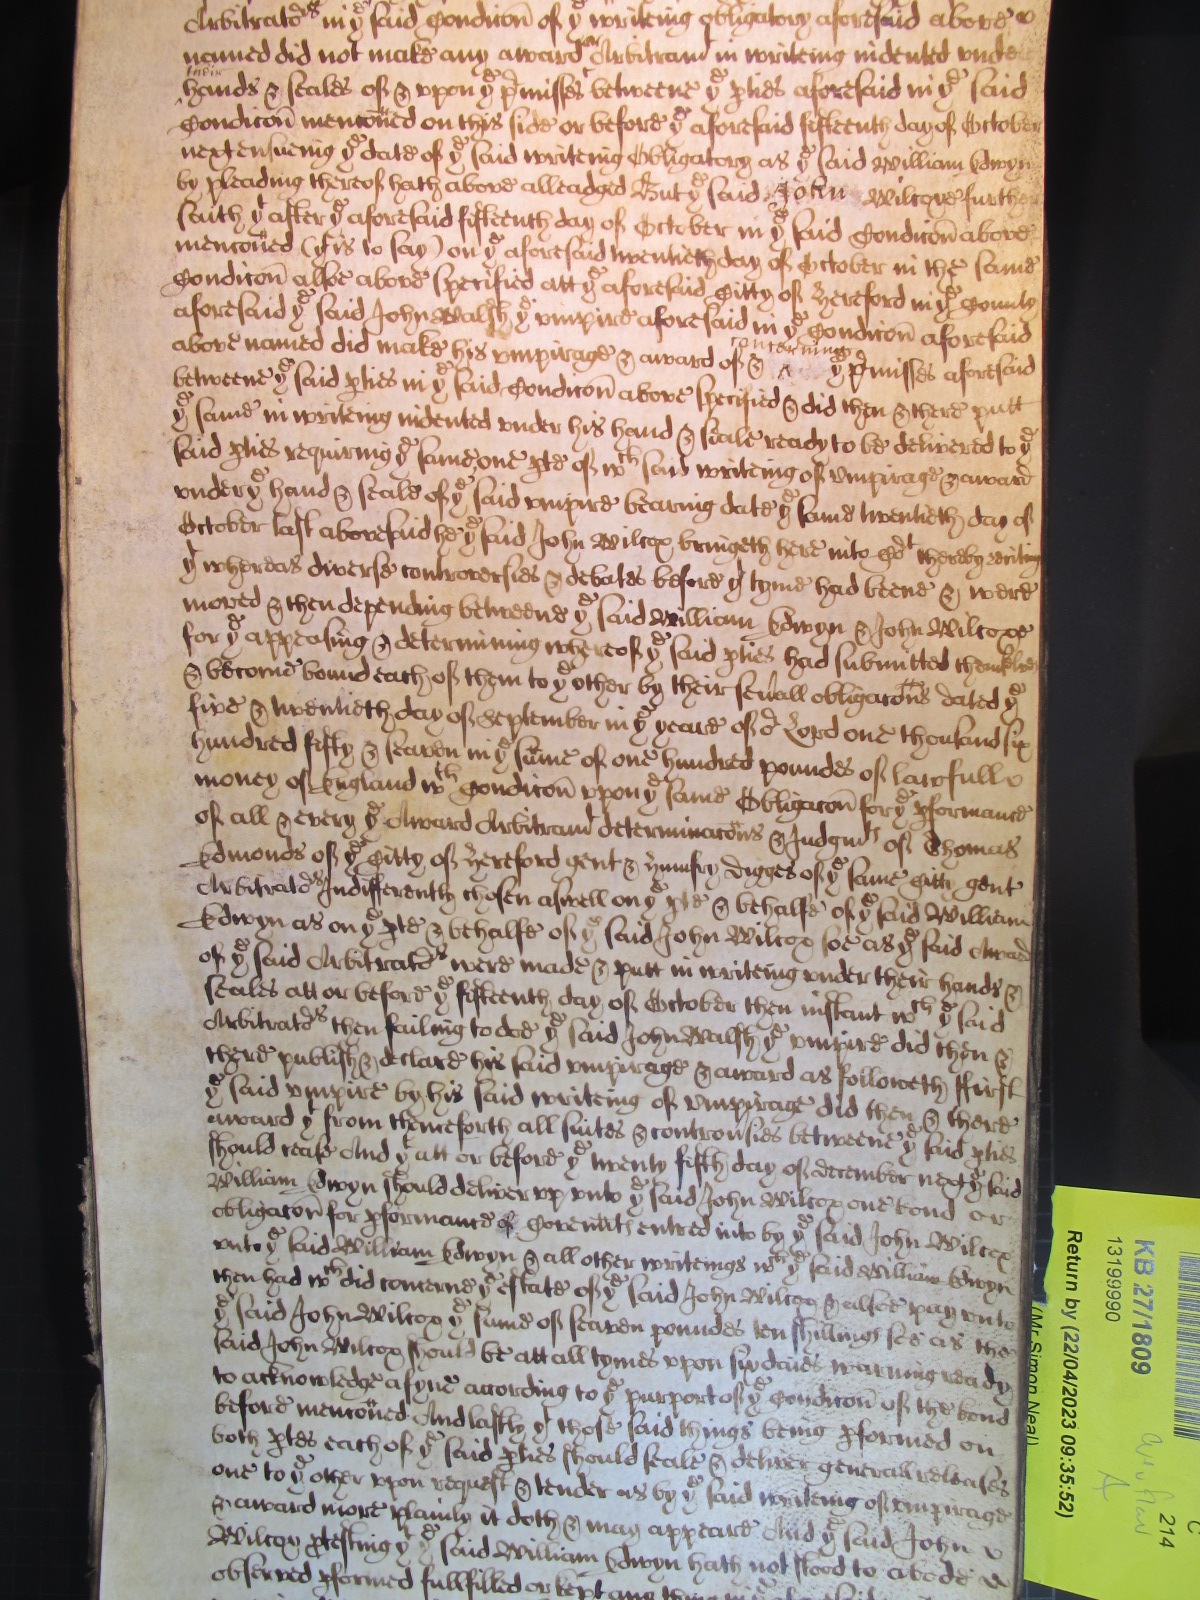 Arbitrators in ye said Condicon of ye writeing obligatory aforesaid above
named did not make any award or Arbitramt in writeing indented under
their
hands & seales of & upon ye pmisses betweene ye pties aforesaid in ye said
Condicon menconed on this side or before ye aforesaid fifteenth day of October
next ensueing ye date of ye said writeing Obligatory as ye said William Edwyn
by pleading thereof hath above alleadged But ye said John Wilcoxe further
saith yt after ye aforesaid fifteenth day of October in ye said Condicon above
menconed (yt is to say) on ye aforesaid twentieth day of October in the same
Condicon alsoe above specified att ye aforesaid Citty of Hereford in ye County
aforesaid ye said John Walsh ye umpire aforesaid in ye Condicon aforesaid
concerning
above named did make his umpirage & award of & ye pmisses aforesaid
betweene ye said pties in ye said Condicon above specified & did then & there putt
ye same in writeing indented under his hand & seale ready to be delivered to ye
said pties requiring ye same one pte of wch said writeing of umpirage & award
under ye hand & seale of ye said umpire bearing date ye same twentieth day of
October last abovesaid he ye said John Wilcox bringeth here into Cort thereby
yt whereas diverse controversies & debates before yt tyme had beene & were
moved & then depending betweene ye said William Edwyn & John Wilcoxe
for ye appeasing & determining whereof ye said pties had submitted themselves
& become bound each of them to ye other by their sevall obligacons dated ye
five & twentieth day of September in ye yeare of or Lord one thousand six
hundred fifty & seaven in ye sume of one hundred poundes of lawfull
money of England wth Condicon upon ye same Obligacon for ye pformance
of all & every ye Award Arbitramt determinacons & Judgmts of Thomas
Edmonds of ye Citty of Hereford gent & Humfry Digges of ye same Citty gent
Arbitrators Indifferently chosen aswell on ye pte & behalfe of ye said William
Edwyn as on ye pte & behalfe of ye said John Wilcox soe as ye said Award
of ye said Arbitrators were made & putt in writeing under their hands &
seales att or before ye fifteenth day of October then instant wch ye said
Arbitrators then failing to doe ye said John Walsh ye umpire did then &
there publish & declare his said umpirage & award as followeth ffirst
ye said umpire by his said writeing of umpirage did then & there
award yt from thenceforth all suites & controvsies betweene ye said pties
should cease And yt att or before ye twenty fifth day of december next ye said
William Edwyn should deliver up unto ye said John Wilcox one bond or
obligacon for pformance of Covenants entred into by ye said John Wilcox
unto ye said William Edwyn & all other writeings wch ye said William Edwyn
then had wch did concerne ye estate of ye said John Wilcox & alsoe pay unto
ye said John Wilcox ye sume of seaven poundes ten shillings soe as the
said John Wilcox should be att all tymes upon six daies warning ready
to acknowledge a fyne according to ye purport of ye Condicon of the bond
before menconed And lastly yt those said things being pformed on
both ptes each of ye said pties should seale & deliver generall releases
one to ye other upon request & tender as by ye said writeing of umpirage
& award more plainly it doth & may appeare And ye said John
Wilcox ptesting yt ye said William Edwyn hath not stood to abode
observed pformed fullfilled or kept any thing in ye
KB 27/1809
13199990
(Mr Simon Neal)
Return by (22/04/2023 09:35:52)
214
C
A